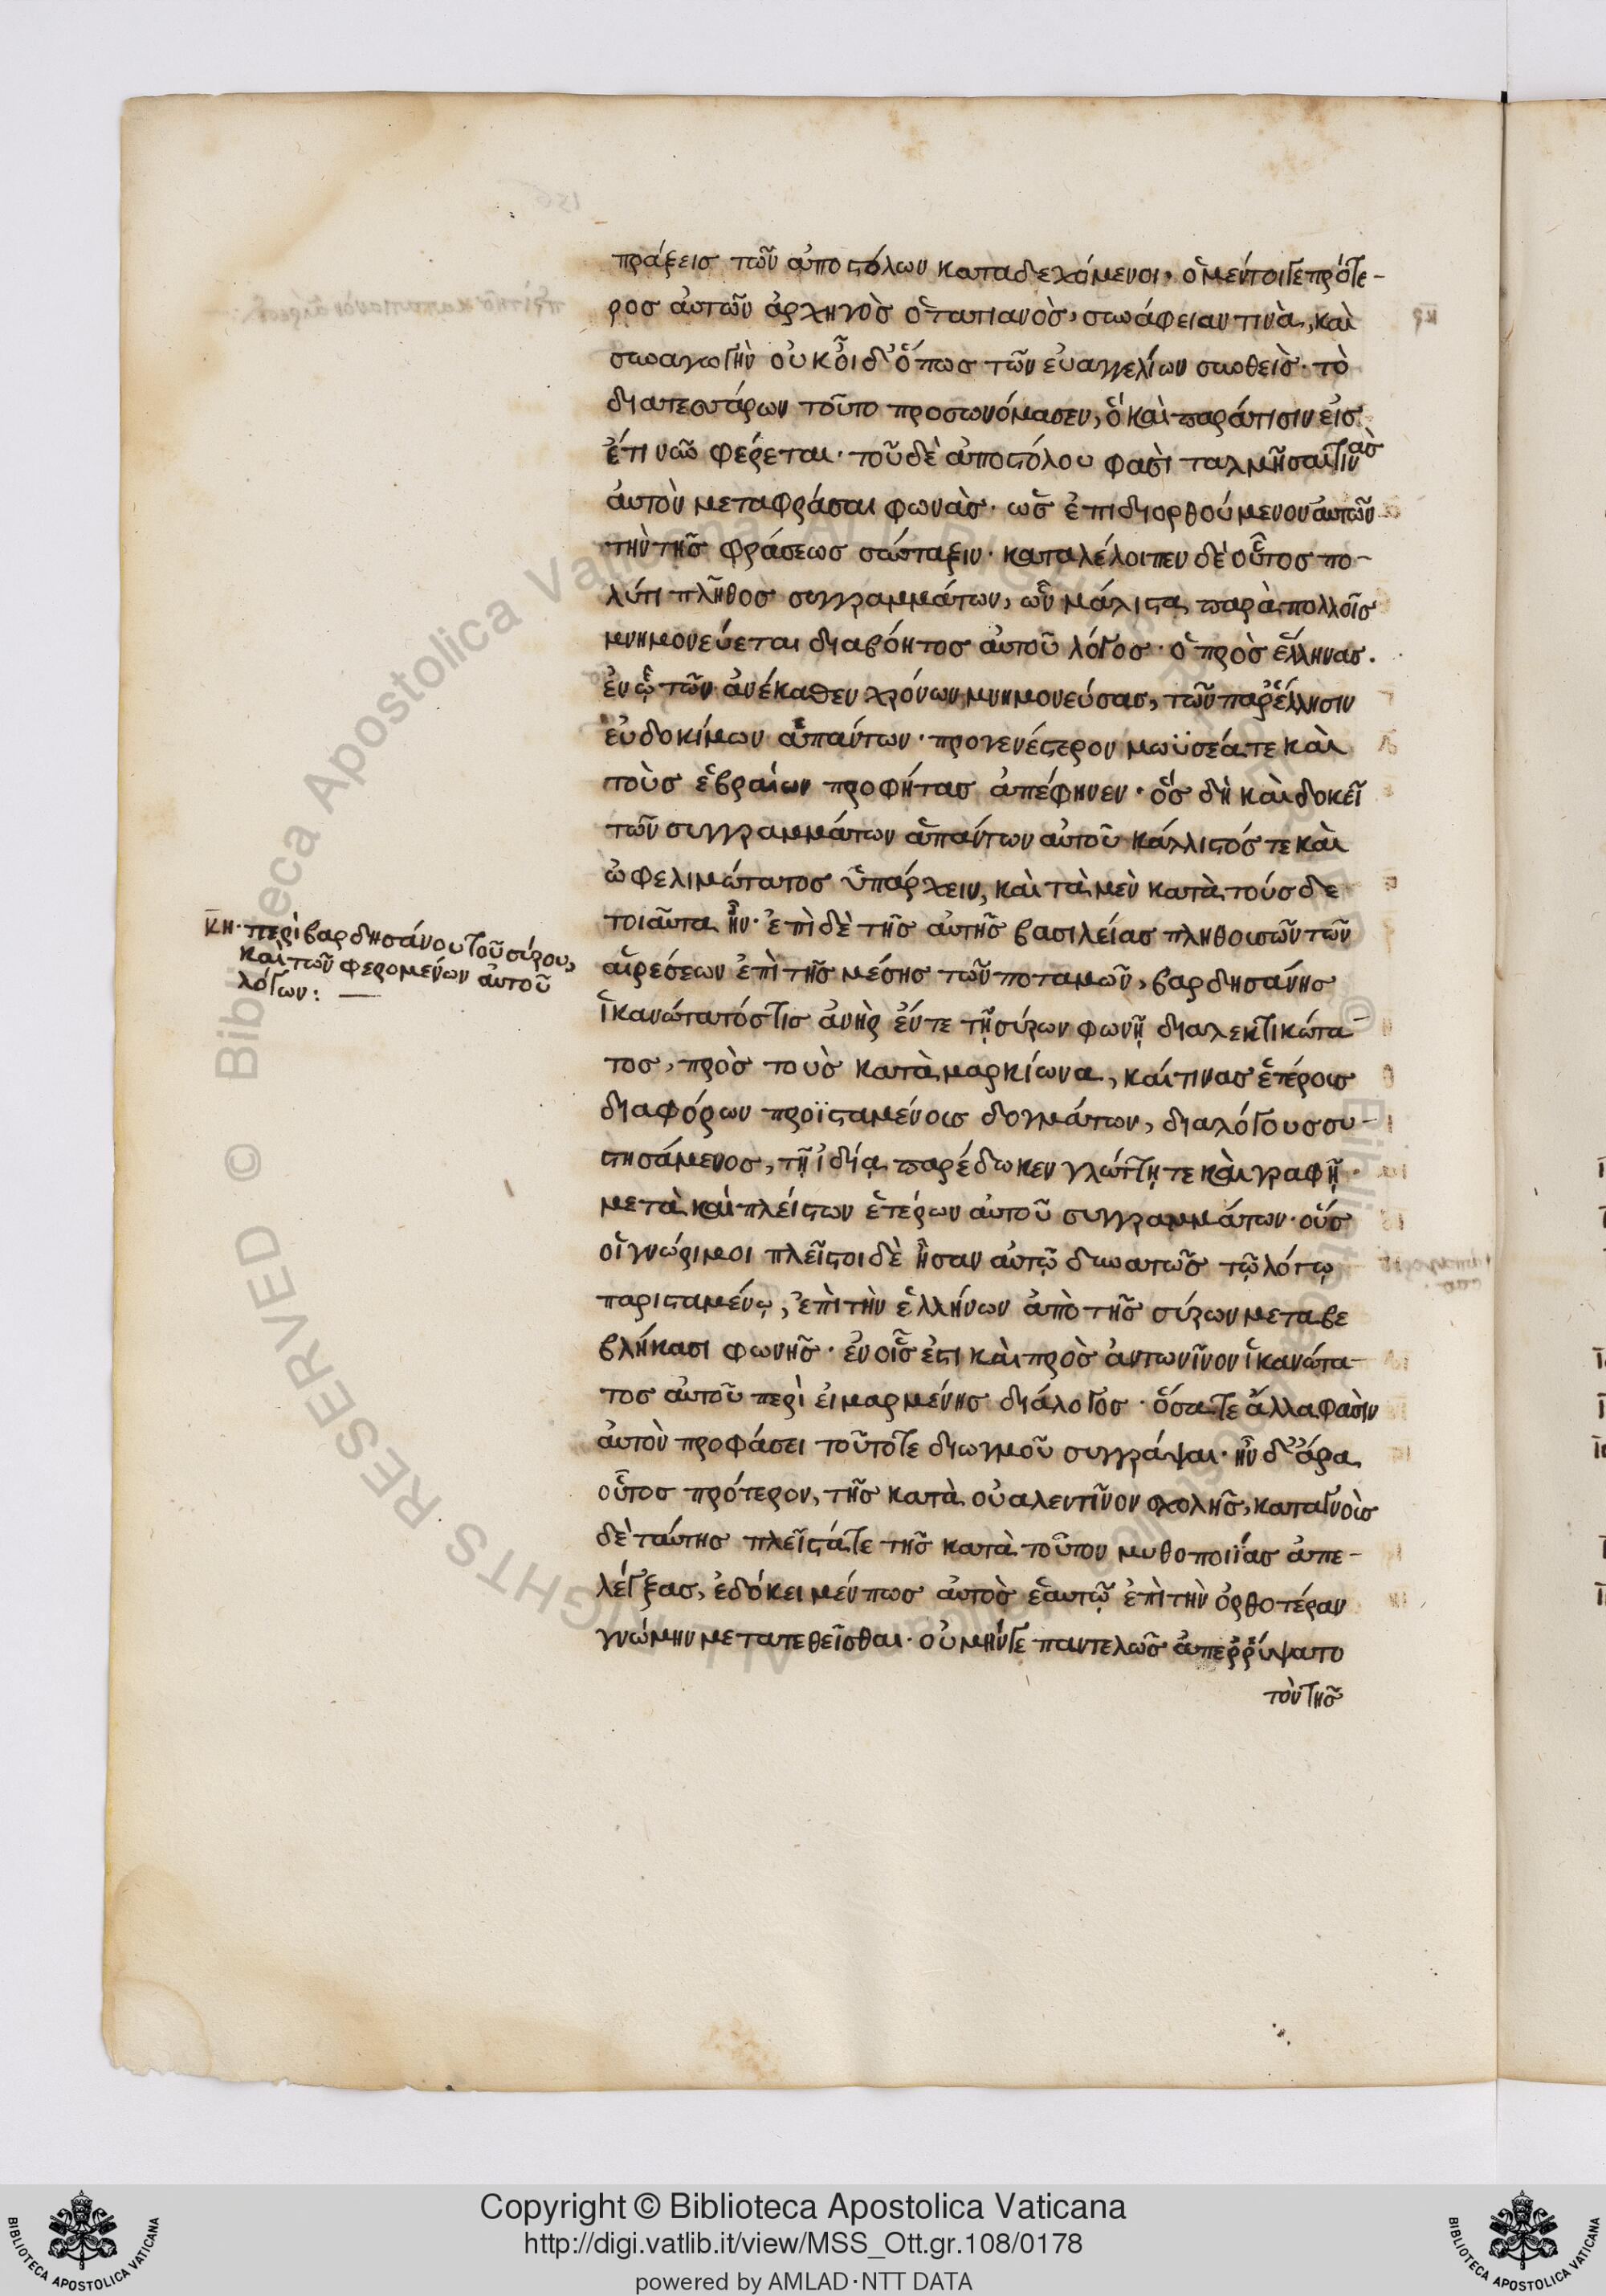 πράξεισ τῶν ἀποστόλων καταδεχόμενοι, ὁ μέντοιγε πρότε-
ροσ αὐτῶν ἀρχηγὸσ ὁ τατιανὸσ, συνάφειαν τινὰ, καὶ
συναγωγὴν οὐκ οἶδ' ὅπωσ τῶν εὐαγγελίων συνθεὶσ· τὸ
διατεσσάρων τοῦτο προσωνόμασεν, ὃ καὶ παράτισιν εἰσ
ἔτι νῦν φέρεται· τοῦ δὲ ἀποστόλου φασὶ τολμῆσαί τινασ
αὐτὸν μεταφράσαι φωνὰσ· ὡσ ἐπιδιορθούμενον αὐτῶν
τὴν τῆσ φράσεωσ σύνταξιν· καταλέλοιπεν δὲ οὗτοσ πο-
λύτι πλῆθοσ συγγραμμάτων, ὧν μάλιστα παρὰ πολλοῖσ
μνημονεύεται διαβόητοσ αὐτοῦ λόγοσ· ὁ πρὸσ ἕλληνασ.
ἐν ᾧ τῶν ἀνέκαθεν χρόνων μνημονεύσασ, τῶν παρ' ἕλλησιν
εὐδοκίμων ἁπάντων· προγενέστερον μωϋσέα τε καὶ
τοὺσ ἑβραίων προφήτασ ἀπέφηνεν· ὃσ δὴ καὶ δοκεῖ
τῶν συγγραμμάτων ἁπάντων αὐτοῦ κάλλιστόσ τε καὶ
ὠφελιμώτατοσ ὑπάρχειν, καὶ τὰ μὲν κατὰ τούσδε
τοιαῦτα ἦν· ἐπὶ δὲ τῆσ αὐτῆσ βασιλείασ πληθουσῶν τῶν
κη· περὶ βαρδησάνου τοῦ σύρου,
καὶ τῶν φερομένων αὐτοῦ
λόγων:
αἱρέσεων ἐπὶ τῆσ μέσησ τῶν ποταμῶν, βαρδησάνησ
ἱκανώτατόσ τισ ἀνὴρ ἔν τε τῇ σύρων φωνῇ διαλεκτικώτα-
τοσ, πρὸσ τοὺσ κατὰ μαρκίωνα, καί τινασ ἑτέρουσ
διαφόρων προϊσταμένουσ δογμάτων, διαλόγουσ συ-
στησάμενοσ, τῇ ἰδίᾳ παρέδωκεν γλώττῃ τε καὶ γραφῇ·
μετὰ καὶ πλείστων ἑτέρων αὐτοῦ συγγραμμάτων· οὓσ
οἱ γνώριμοι πλεῖστοι δὲ ἦσαν αὐτῷ δυνατῶσ τῷ λόγῳ
παρισταμένῳ, ἐπὶ τὴν ἑλλήνων ἀπὸ τῆσ σύρων μεταβε
βλήκασι φωνῆσ· ἐν οἷσ ἐστι καὶ πρὸσ ἀντωνῖνον ἱκανώτα-
τοσ αὐτοῦ περὶ εἱμαρμένησ διάλογοσ· ὅσα τε ἄλλα φασὶν
αὐτὸν προφάσει τοῦ τότε διωγμοῦ συγγράψαι· ἦν δ' ἄρα
οὗτοσ πρότερον, τῆσ κατὰ οὐαλεντῖνον σχολῆσ, καταγνοὺσ
δὲ ταύτησ πλεῖστά τε τῆσ κατὰ τοῦτον μυθοποιΐασ ἀπε-
λέγξασ, ἐδόκει μέν πωσ αὐτὸσ ἑαυτῷ ἐπὶ τὴν ὀρθοτέραν
γνώμην μετατεθεῖσθαι· οὐ μήν γε παντελῶσ ἀπεῤῥίψατο
τὸν τῆσ
© Biblioteca Apostolica Vaticana ALL RIGHTS RESERVED
Copyright © Biblioteca Apostolica Vaticana
http://digi.vatlib.it/view/MSS_Ott.gr.108/0178
powered by AMLAD·NTT DATA
BIBLIOTECA APOSTOLICA VATICANA
BIBLIOTECA APOSTOLICA VATICANA